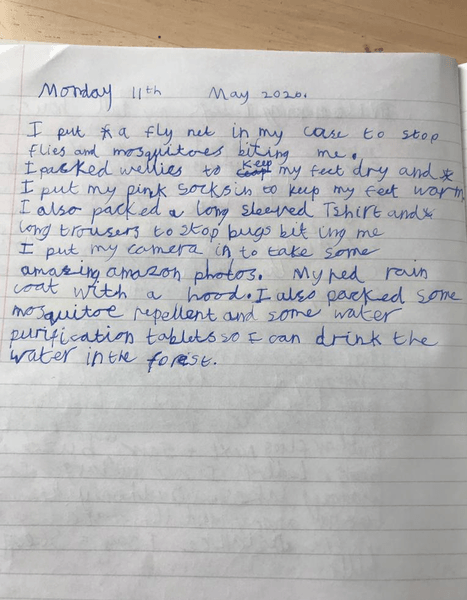 Monday 11th May 2020.
I put a fly net in my case to stop
flies and mosquitoes biting me.
I packed wellies to keep my feet dry and
I put my pink socks in to keep my feet warm
I also packed a long sleeved Tshirt and
long trousers to stop bugs biting me
I put my camera in to take some
amazing amazon photos. My red rain
coat with a hood. I also packed some
mosquitoe repellent and some water
purification tablets so I can drink the
water in the forest.